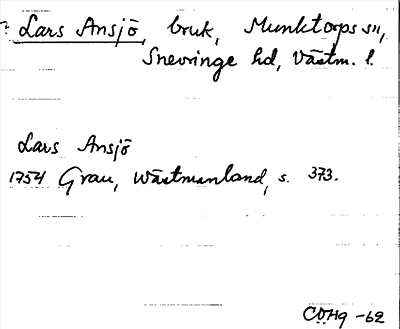 Lars Ansjö, bruk, Munktorps sn,
Snevinge hd, Västm. l.
Lars Ansjö
1754 Grau, Wästmanland, s. 373.
CÖHg -62